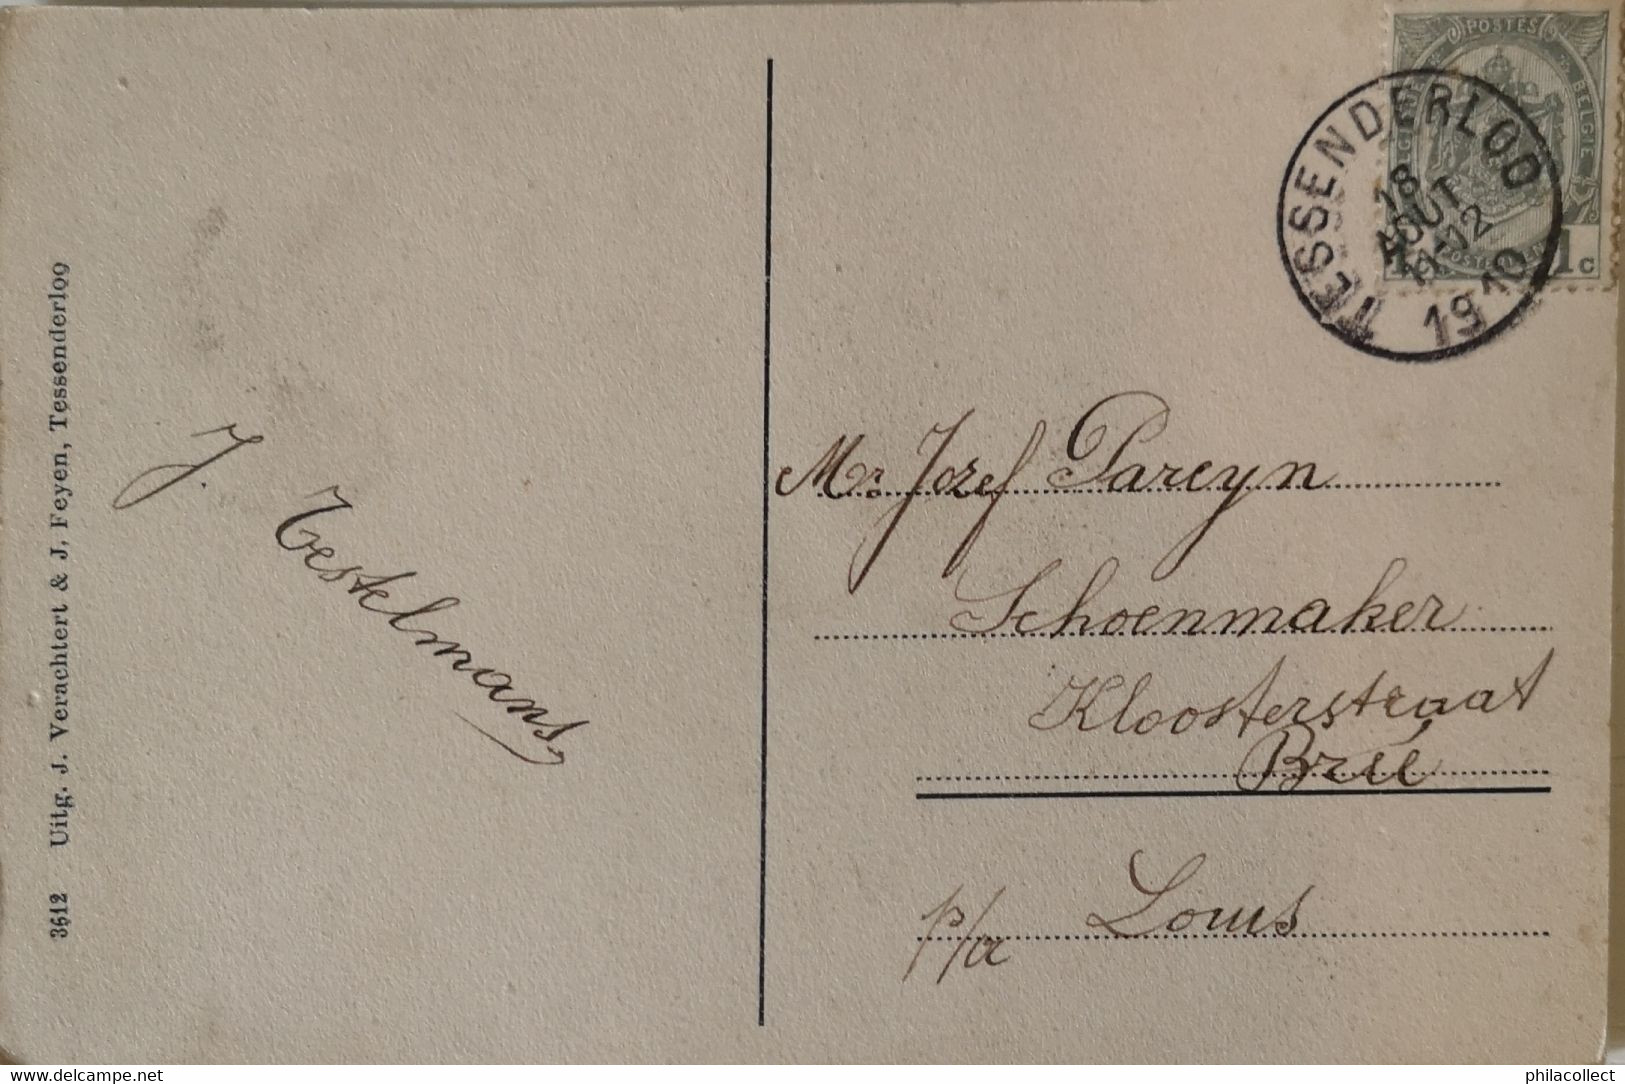 3612 Uitg. J. Verachtert & J. Feyen, Tessenderloo
J. Testelmans
POSTES
BELGIE
1c
TESSENDERLOO
18
AOUT
11-12
1910
Mr. Jozef Pareyn
Schoenmaker
Kloosterstraat
Brée
p/a Louis
https://www.delcampe.net
philacollect